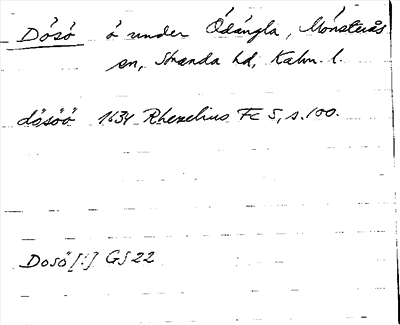 Dösö ö under Ödängla, Mönsterås
sn, Stranda hd, Kalm. l.
dösöö 1634 Rhezelius Fc 5, s. 100.
Dosö [!] GS 22